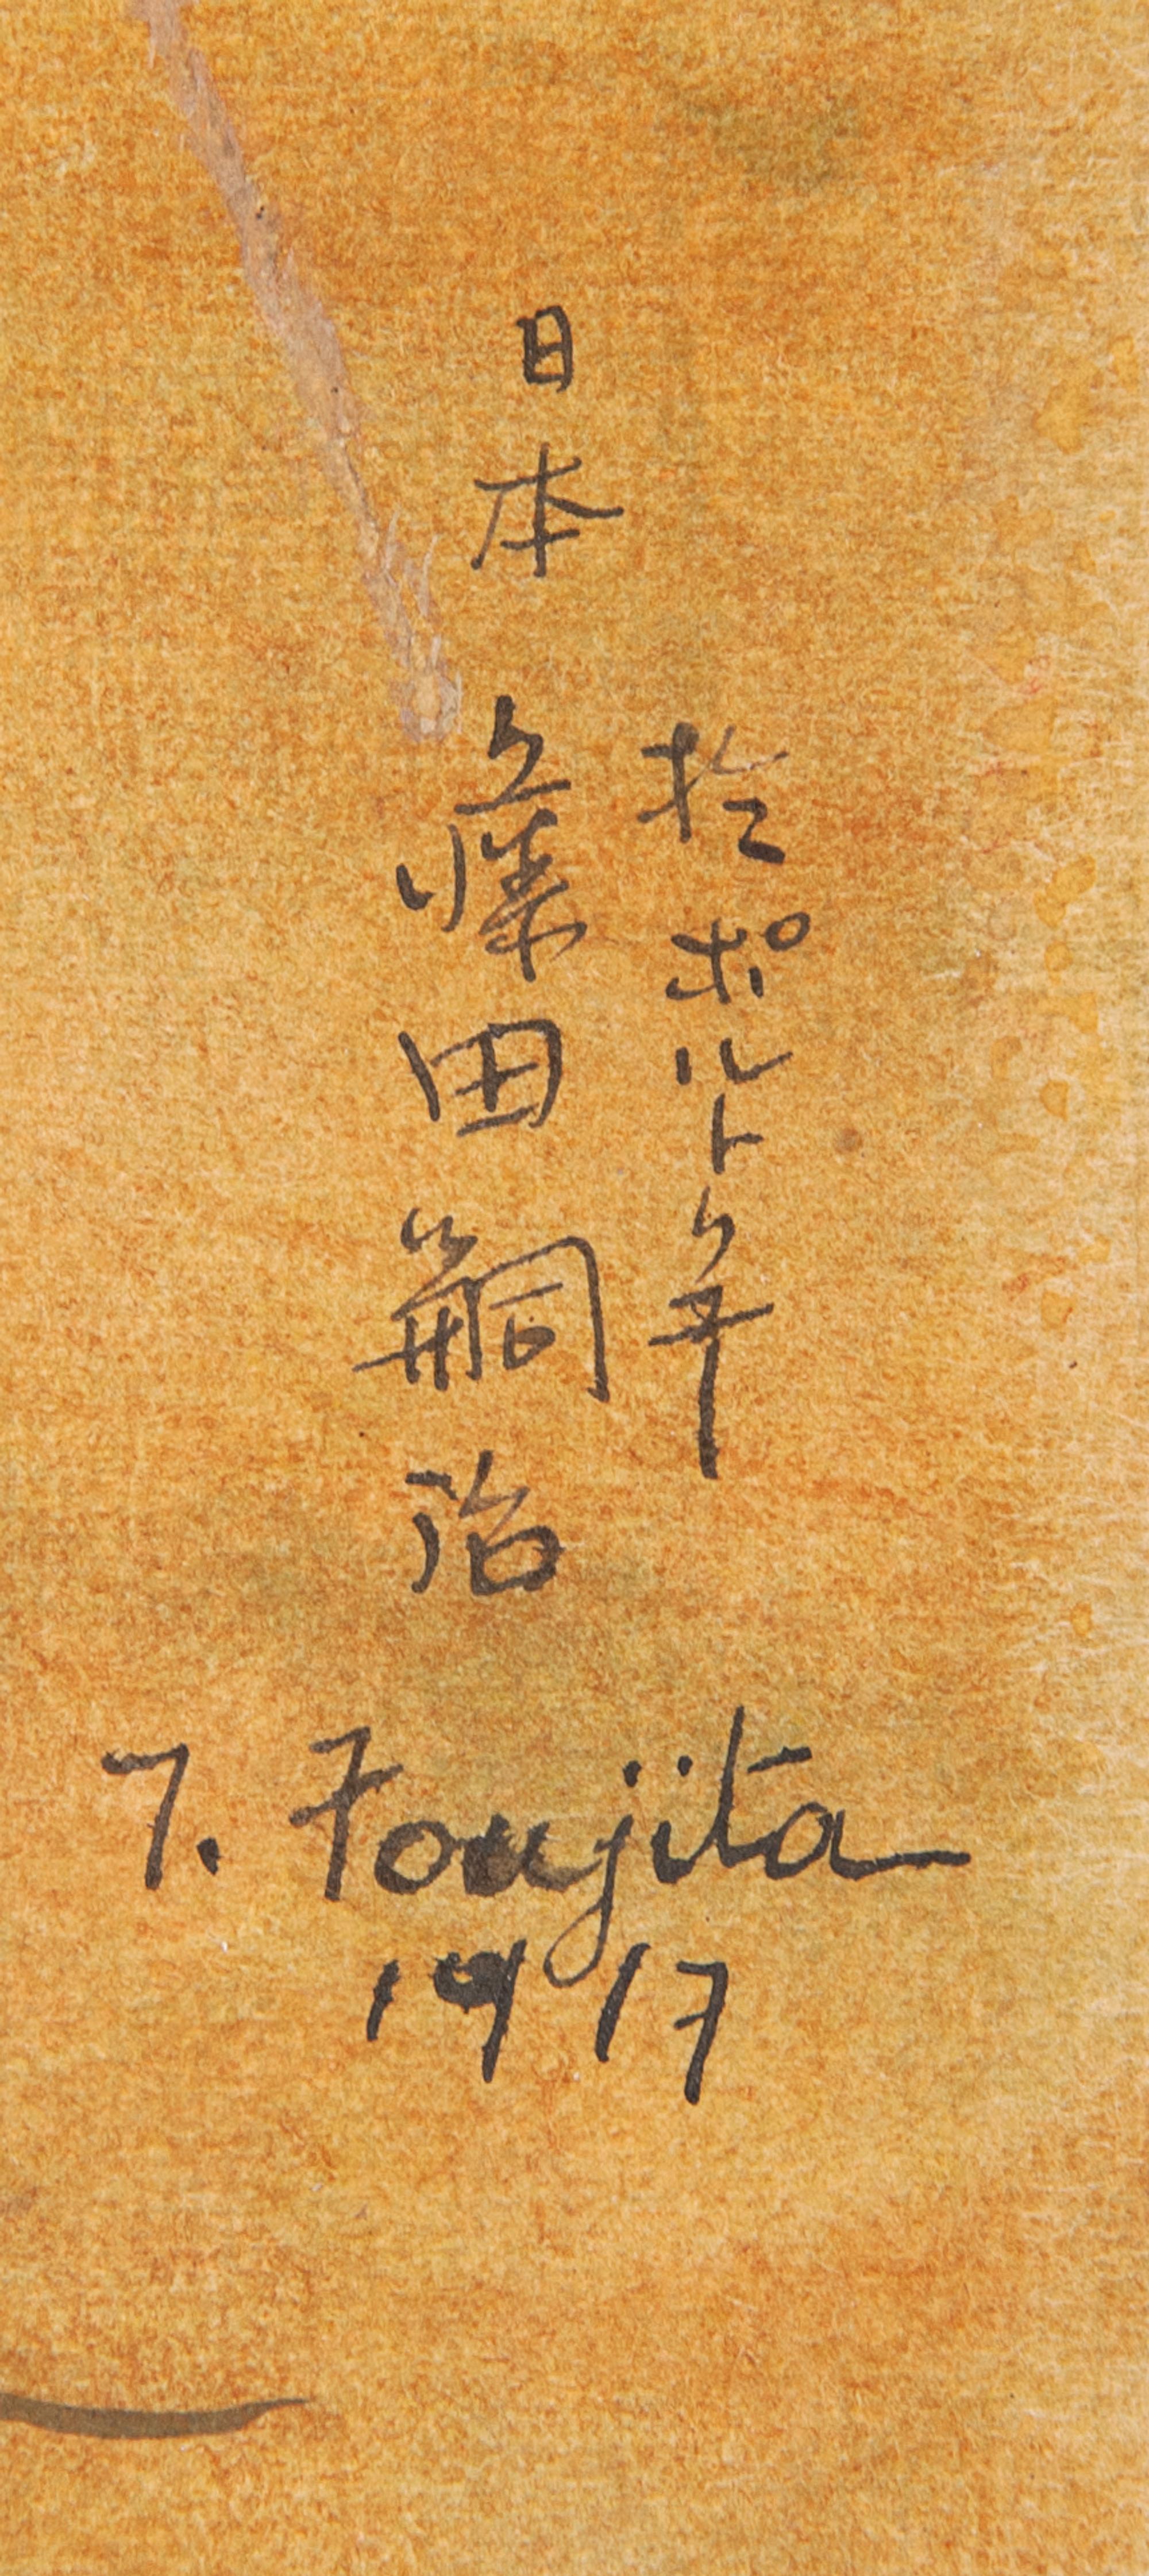 於ポルト年
日本 藤田嗣治
T. Foujita
1917